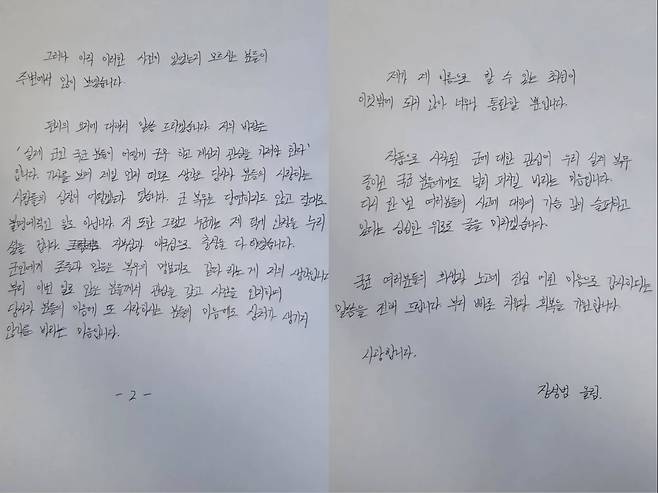 그러나 아직 이러한 사건이 있었는지 모르시는 분들이
주변에서 많이 보였습니다.
편지의 요지에 대해서 말씀 드리겠습니다. 저의 바람은
'실제 군인 국군 분들이 어떻게 근무 하고 계신지 관심을 가져야 한다'
입니다. 기사를 보며 제일 먼저 떠오른 생각은 당사자 분들의 사랑하는
사람들의 심정이 어떠했는가 였습니다. 군 복무는 당연하지도 않고 절대로
불명예적인 일도 아닙니다. 저 또한 그랬고 누군가는 제 덕에 안락을 누리
셨을 겁니다. 자부심과 애국심으로 충성을 다 하였습니다.
군인에게 존중과 믿음은 복무의 명분과도 같다 하는 게 저의 생각입니다
부디 이번 일로 많은 분들께서 관심을 갖고 사안을 인지하여
당사자 분들의 마음에 또 사랑하시는 분들의 마음에도 상처가 생기지
않기를 바라는 마음입니다.
- 2 -
제가 제 이름으로 할 수 있는 최선이
이것밖에 되지 않아 너무나 통탄할 뿐입니다.
작품으로 시작된 군에 대한 관심이 우리 실제 복무
중이신 국군 분들에게도 널리 퍼지길 바라는 마음입니다.
다시 한 번 여러분들의 사고에 대하여 가슴 깊이 슬퍼하고
있다는 심심한 위로로 글을 마치겠습니다.
국군 여러분들의 희생과 노고에 진심 어린 마음으로 감사하다는
말씀을 전해 드립니다 부디 빠른 치유와 회복을 기원합니다
사랑합니다.
김성범 올림.